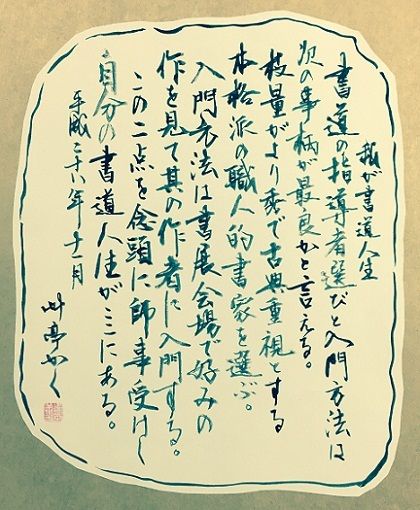 我が書道人生
書道の指導者選びと入門方法は
次の事柄が最良かと言える。
技量がより秀で古典重視とする
本格派の職人的書家を選ぶ。
入門方法は書展会場で好みの
作を見て其の作者に入門する。
この二点を念頭に師事受けし
自分の書道人生がここにある。
平成二十八年十一月
亭かく